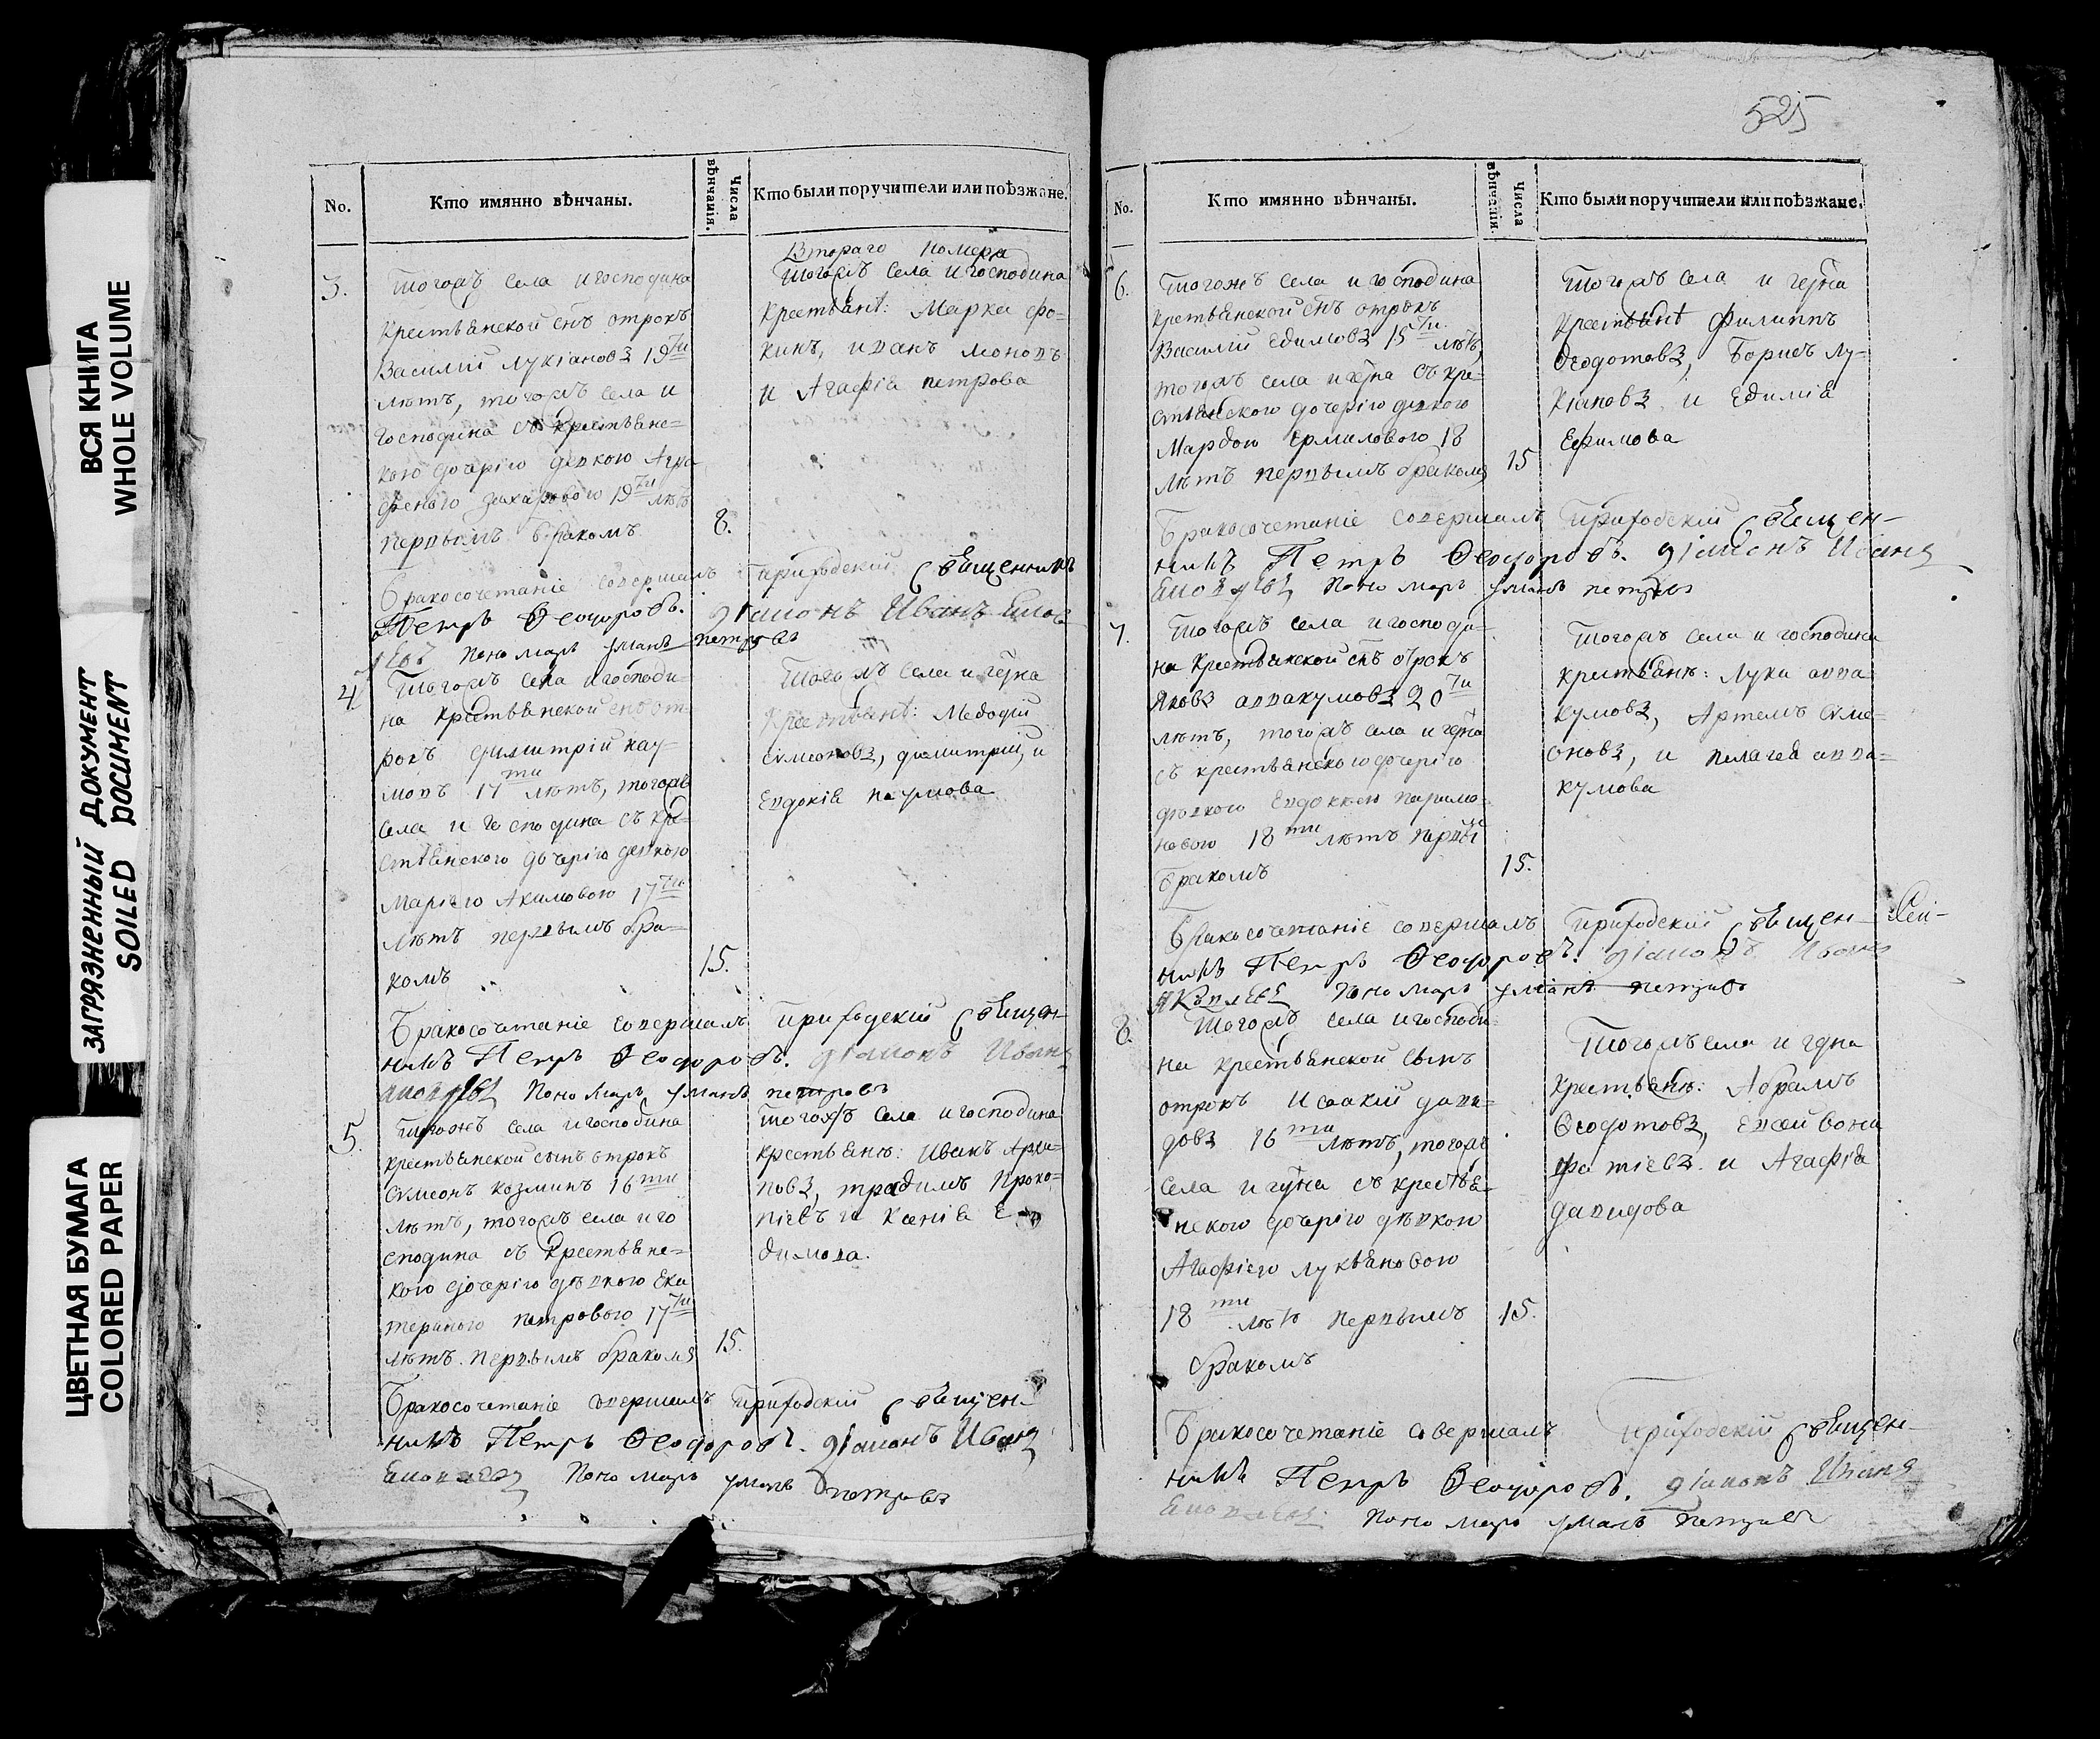 ВСЯ КНИГА
WHOLE VOLUME
ЗАГРЯЗНЕННЫЙ ДОКУМЕНТ
SOILED DOCUMENT
ЦВЕТНАЯ БУМАГА
COLORED PAPER
No.
Кто имянно вѣнчаны.
Числа вѣнчанія.
Кто были поручители или поѣзжане.
3.
Тогожъ села и господина
крестьянской снъ отрокъ
Василій Лукіановъ 19ти
лѣтъ, тогожъ села и
господина съ крестьянс=
кою дочерію девкою Агра
феною Захаровою 19ти лѣтъ
первымъ бракомъ
8.
Втораго номера
тогожъ села и господина
крестьянѣ: Марка Фо=
кинъ, иванъ
и Агафія петрова
Бракосочетаніе совершалъ приходскій священникъ
Петръ Ѳеодоровъ. діаконъ Иванъ
Пономарь петровъ
4
Тогожъ села и господи=
на крестьянской снъ от=
рокъ Димитрій нау=
мовъ 17ти лѣтъ, тогожъ
села и господина съ кре=
стьянскою дочерію девкою
Маріею Акимовою 17ти
лѣтъ первымъ бра=
комъ
15.
Тогожъ села и гдна
крестьянѣ: Меѳодій
Сѵмеоновъ, димитрій, и
Евдокія наумова
Бракосочетаніе совершалъ приходскій священ=
никъ Петръ Ѳеодоровъ. діаконъ Иванъ
Пономарь петровъ
5.
Тогожъ села и господина
крестьянской сынъ отрокъ
Сѵмеонъ козминъ 16ти
лѣтъ, тогожъ села и го
сподина съ крестьянс=
кою дочерію дѣвкою Ека
териною петровою 17ти
лѣтъ первымъ бракомъ
15.
тогожъ села и господина
крестьяню: Иванъ
повъ, Проко=
піевъ и Ксенія Е
димова.
Бракосочетаніе совершалъ приходскій священ=
никъ Петръ Ѳеодоровъ. діаконъ Иванъ
Пономарь петровъ
525
No.
Кто имянно вѣнчаны.
Числа вѣнчанія.
Кто были поручители или поѣзжане.
6.
Тогожъ села и господина
крестьянской снъ отрокъ
Василій Едимовъ 15ти лѣтъ,
тогожъ села и гдна съ кре=
стьянскою дочерію дѣвкою
Марѳою Ермиловою 18
лѣтъ первымъ бракомъ
15
Тогожъ села и гдна
крестьянѣ Филиппъ
Ѳеодотовъ, Борисъ Лу=
кіановъ и Едимія
Ефимова
Бракосочетаніе совершалъ приходскій священ=
никъ Петръ Ѳеодоровъ. діаконъ Иванъ
Пономарь петровъ
7.
Тогожъ села и господи=
на крестьянской снъ отрокъ
Яковъ аввакумовъ 20ти
лѣтъ, тогожъ села и гдна
съ крестьянскою дочерію
дѣвкою Евдокією
новою 18ти лѣтъ первы
бракомъ
15.
Тогожъ села и господина
крестьянѣ: Лука авва=
кумовъ, Артемъ Сѵме=
оновъ, и пелагея авва=
кумова
Бракосочетаніе совершалъ приходскій священ=
никъ Петръ Ѳеодоровъ. діаконъ Иванъ
Яковлевъ Пономарь петровъ
8.
Тогожъ села и господи=
на крестьянской сынъ
отрокъ Исаакій дави=
довъ 16ти лѣтъ, тогожъ
села и гдна съ крестья=
нскою дочерію дѣвкою
Агафіею Лукьяновою
18ти лѣтъ первымъ
бракомъ
15.
Тогожъ села и гдна
крестьянѣ: Абрамъ
Ѳеодотовъ,
и Агафія
давидова
Бракосочетаніе совершалъ приходскій священ=
никъ Петръ Ѳеодоровъ. діаконъ Иванъ
Пономарь петровъ